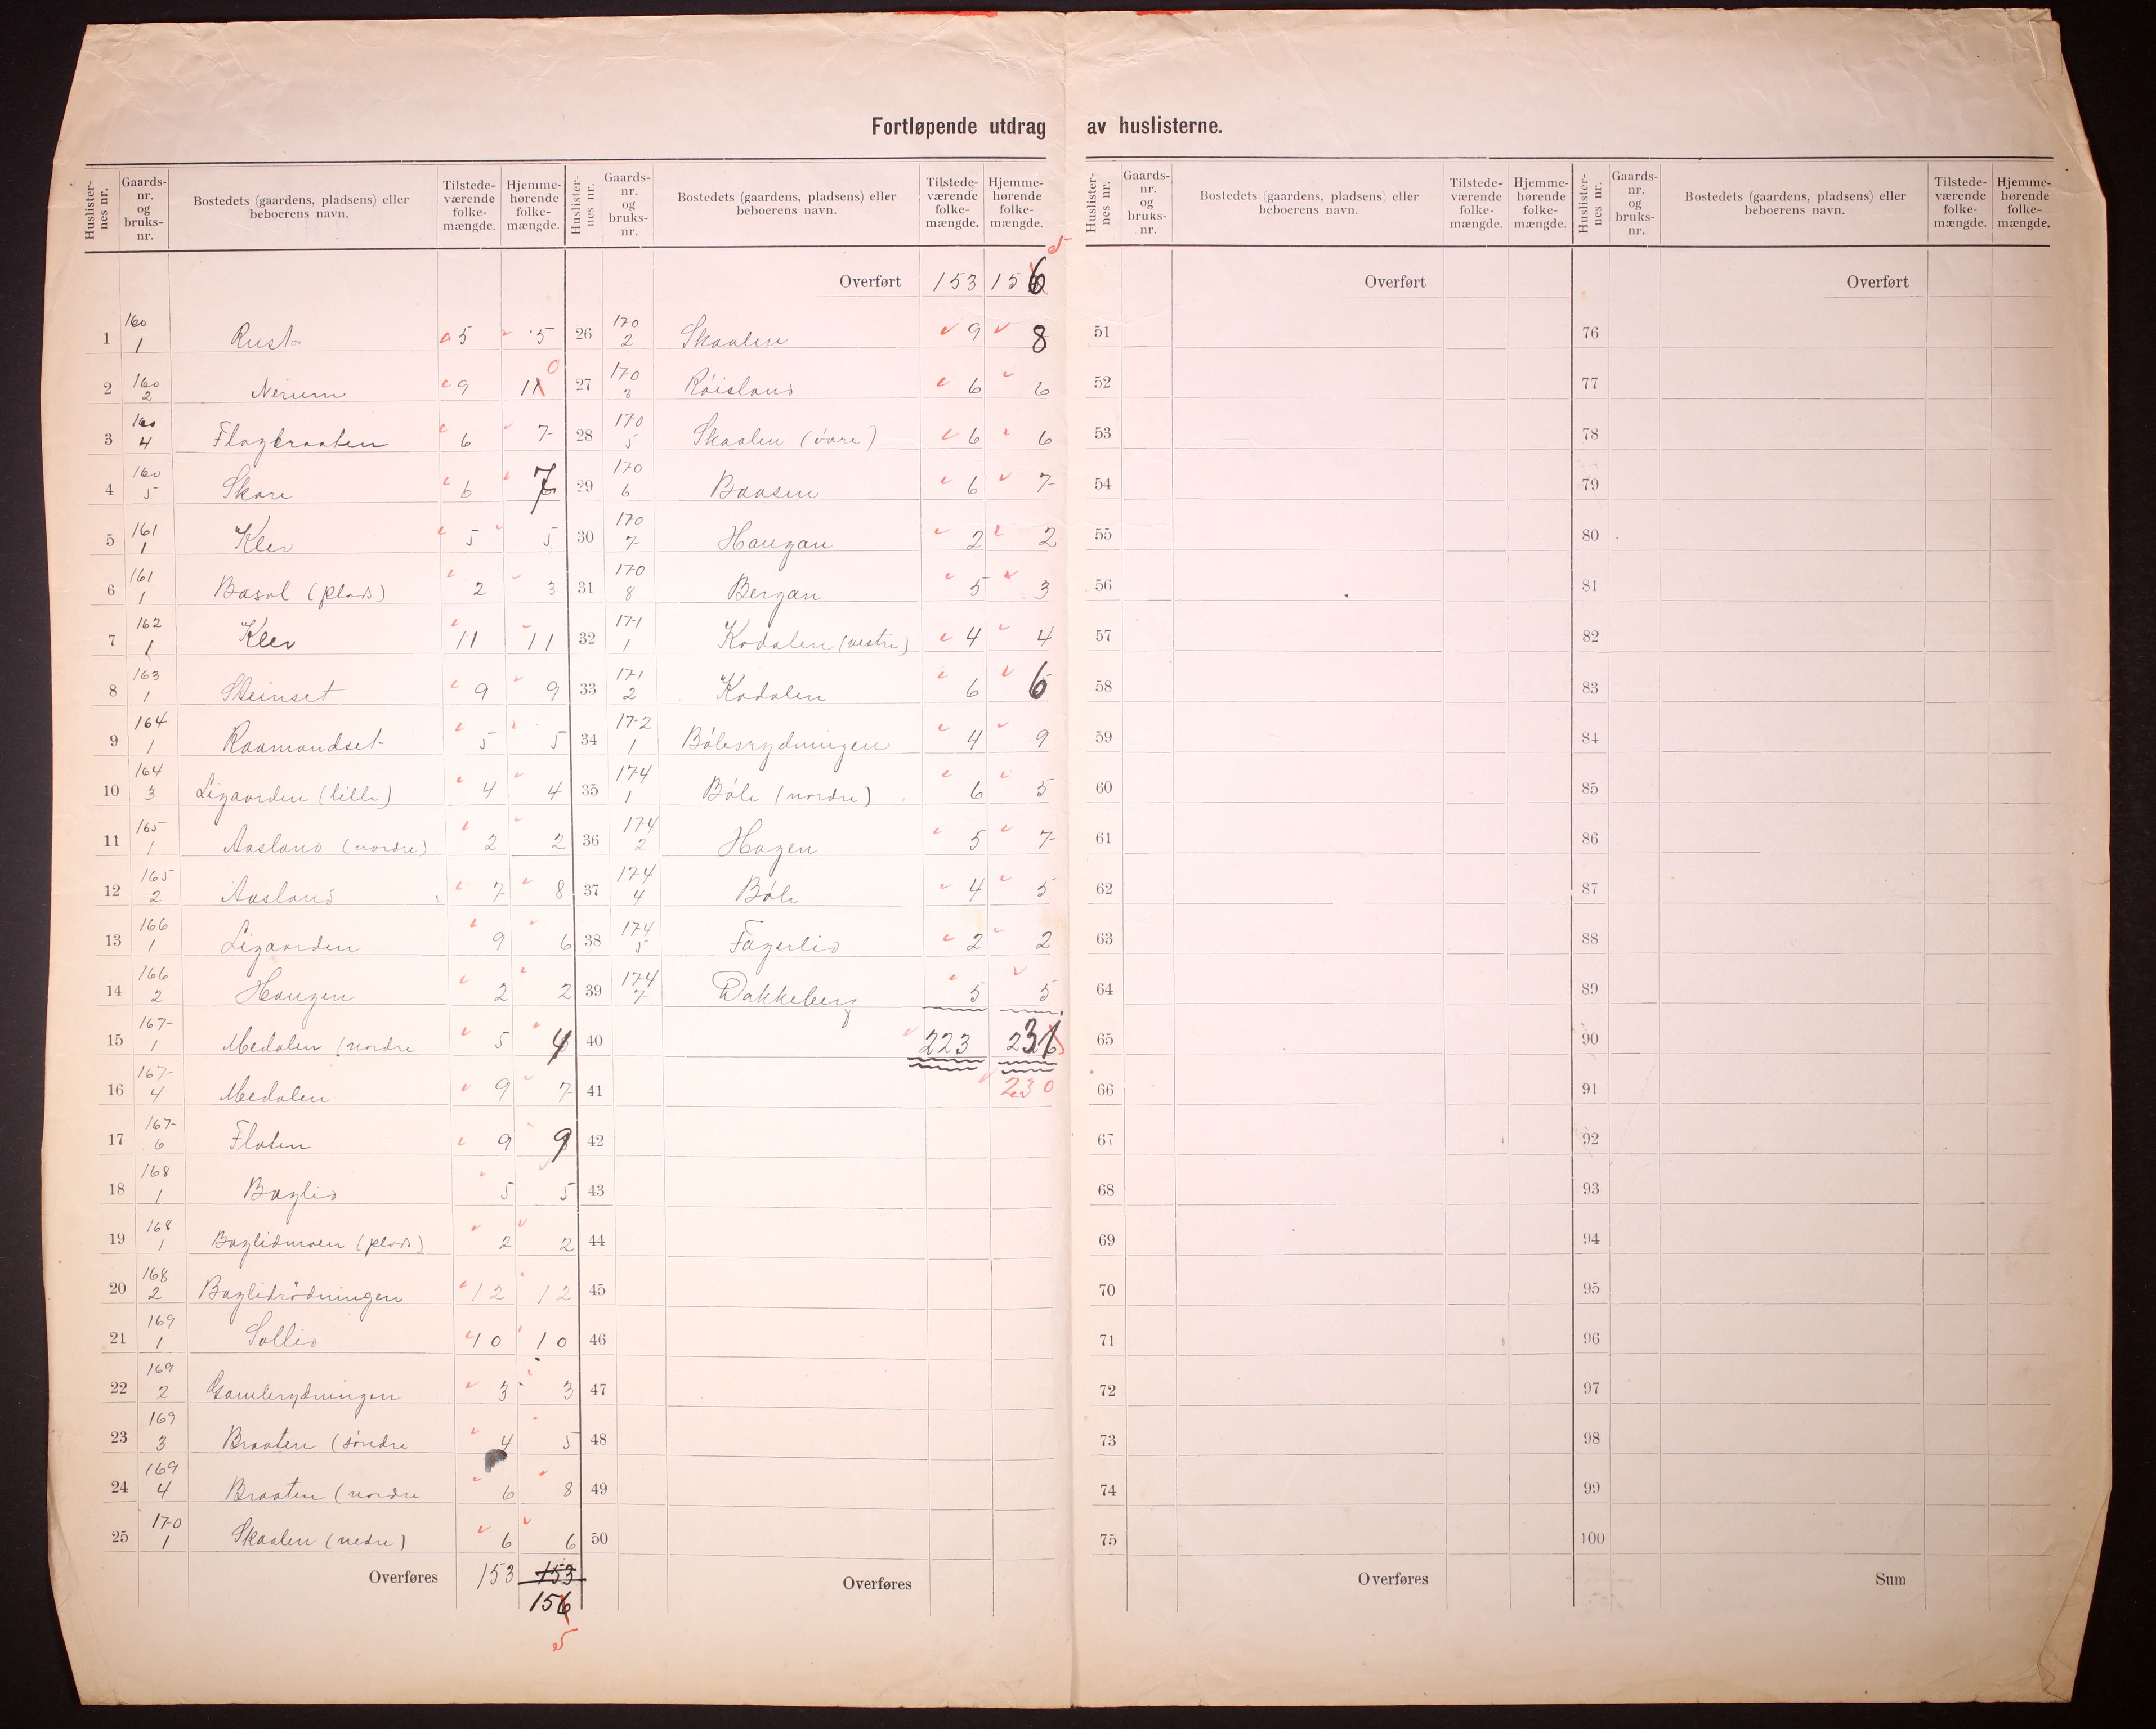 Fortløpende utdrag av huslisterne.
Huslisternes nr. Gaardsnr. og bruksnr. Bostedets (gaardens, pladsens) eller beboerens navn. Tilstedeværende folkemængde. Hjemmehørende folkemængde.
1 160 1 Rust 5 5
2 160 2 Nerum 9 11 0
3 160 4 Flagbraaten 6 7
4 160 5 Skare 6 7
5 161 1 Klev 5 5
6 161 1 Basal (plads) 2 3
7 162 1 Klev 11 11
8 163 1 Steinset 9 9
9 164 1 Raamundset 5 5
10 164 3 Ligaarden (lille) 4 4
11 165 1 Aasland (nordre) 2 2
12 165 2 Aasland 7 8
13 166 1 Ligaarden 9 6
14 166 2 Haugen 2 2
15 167 1 Medalen (nordre 5 4
16 167 4 Medalen 9 7
17 167 6 Flaten 9 9
18 168 1 Baglid 5 5
19 168 1 Baglidmoen (plads) 2 2
20 168 2 Baglidrödningen 12 12
21 169 1 Sollid 10 10
22 169 2 Gamlerydningen 3 3
23 169 3 Braaten (söndre 4 5
24 169 4 Braaten (nordre 6 8
25 170 1 Skaalen (nedre) 6 6
Overføres 153 153
156
5
Huslisternes nr. Gaardsnr. og bruksnr. Bostedets (gaardens, pladsens) eller beboerens navn. Tilstedeværende folkemængde. Hjemmehørende folkemængde.
5
Overført 153 156
26 170 2 Skaalen 9 8
27 170 3 Röisland 6 6
28 170 5 Skaalen (övre) 6 6
29 170 6 Baasen 6 7
30 170 7 Haugan 2 2
31 170 8 Bergan 5 3
32 171 1 Kodalen (vestre) 4 4
33 171 2 Kodalen 6 6
34 172 1 Bölesrydningen 4 9
35 174 1 Böle (nordre) 6 5
36 174 2 Hagen 5 7
37 174 4 Böle 4 5
38 174 5 Fagerlid 2 2
39 174 7 Dakkeberg 5 5
40 223 231
41 230
42
43
44
45
46
47
48
49
50
Overføres
Huslisternes nr. Gaardsnr. og bruksnr. Bostedets (gaardens, pladsens) eller beboerens navn. Tilstedeværende folkemængde. Hjemmehørende folkemængde.
Overført
51
52
53
54
55
56
57
58
59
60
61
62
63
64
65
66
67
68
69
70
71
72
73
74
75
Overføres
Huslisternes nr. Gaardsnr. og bruksnr. Bostedets (gaardens, pladsens) eller beboerens navn. Tilstedeværende folkemængde. Hjemmehørende folkemængde.
Overført
76
77
78
79
80
81
82
83
84
85
86
87
88
89
90
91
92
93
94
95
96
97
98
99
100
Sum